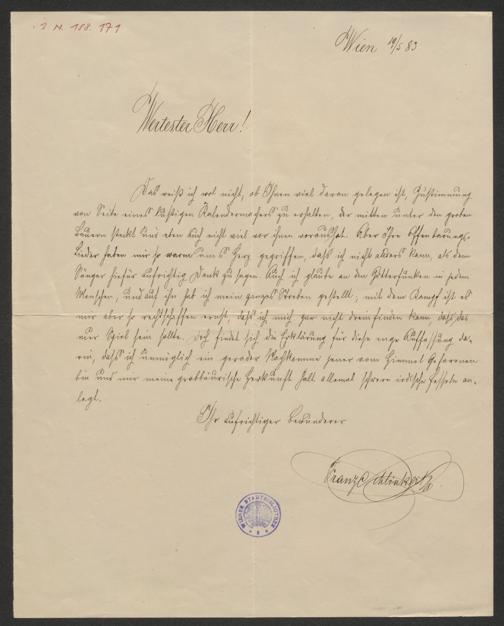 I. N. 188.171
Wien 19/5 83
Wertester Herr!
Das weiß ich wol nicht, ob Ihnen viel daran gelegen ist, Zustimmung
von Seite eines lustigen Kalendermachers zu erhalten, der mitten unter den groben
Bauern steckt und eben auch nicht viel vor ihnen voraushat. Aber Ihre
Lieder haben mir so warm ans Herz gegriffen, daß ich nicht anders kann, als dem
Sänger hiefür aufrichtig Dank zu sagen. Auch ich glaube an den Götterfunken in jedem
Menschen, und auf ihn hab ich mein ganzes Streben gestellt; mit dem Kampf ist es
mir aber so rechtschaffen ernst, daß ich mich gar nicht dreinfinden kann, daß das
nur Spiel sein sollte. Doch findet sich die Erklärung für diese enge Auffassung da-
rin, daß ich unmöglich ein gerader Nachkomme jener vom Himmel Gefallenen
bin und nur meine grobbäurische Herkunft halt allemal schwere irdische Fesseln an-
legt.
Ihr aufrichtiger Bewunderer
Franz
WIENER STADTBIBLIOTHEK